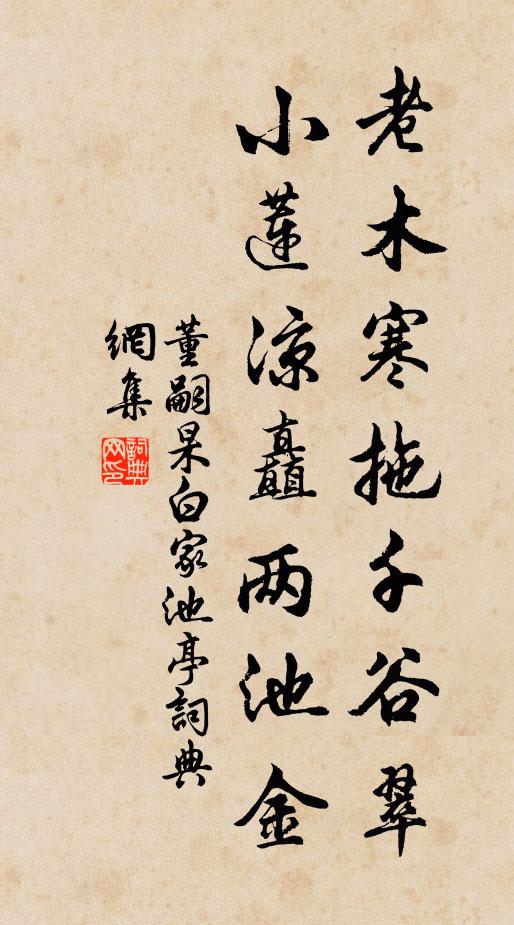 老木寒拖千谷翠
小蓮涼矗两池金
董嗣杲白家池亭詞典
網集
詞典
网印